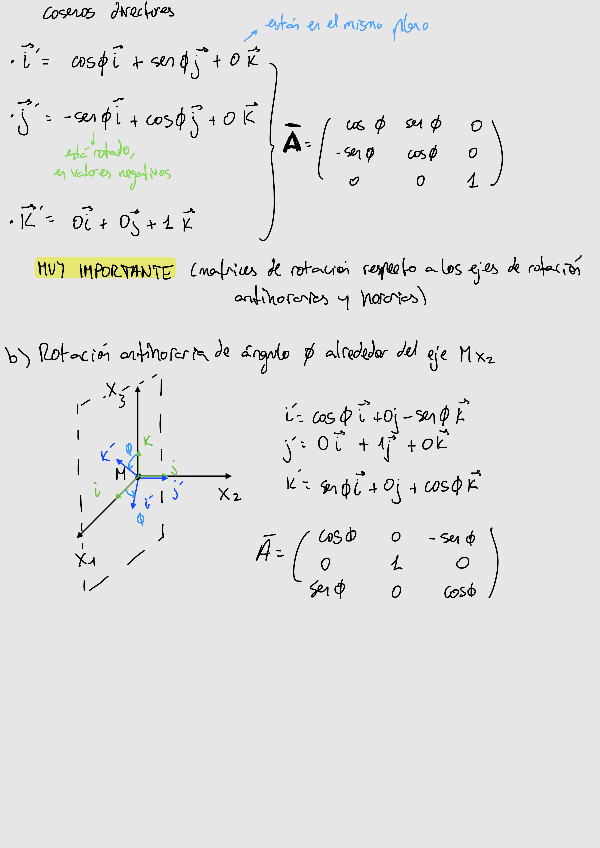 cosenos directores
están en el mismo plano
· i⃗´ = cosϕ i⃗ + senϕ j⃗ + 0 k⃗
· j⃗´ = -senϕ i⃗ + cosϕ j⃗ + 0 k⃗
está rotado,
en valores negativos
· k⃗´ = 0 i⃗ + 0 j⃗ + 1 k⃗
Ā = ( cos ϕ sen ϕ 0
-sen ϕ cos ϕ 0
0 0 1 )
MUY IMPORTANTE (matrices de rotación respecto a los ejes de rotación
antihorarias y horarias)
b) Rotación antihoraria de ángulo ϕ alrededor del eje Mx₂
X₃
k´ ϕ k
M j
i i´ j´
ϕ
X₂
X₁
i´ = cosϕ i⃗ + 0j - senϕ k⃗
j´ = 0 i⃗ + 1 j⃗ + 0 k⃗
k´ = senϕ i⃗ + 0j + cosϕ k⃗
Ā = ( cosϕ 0 -senϕ
0 1 0
senϕ 0 cosϕ )